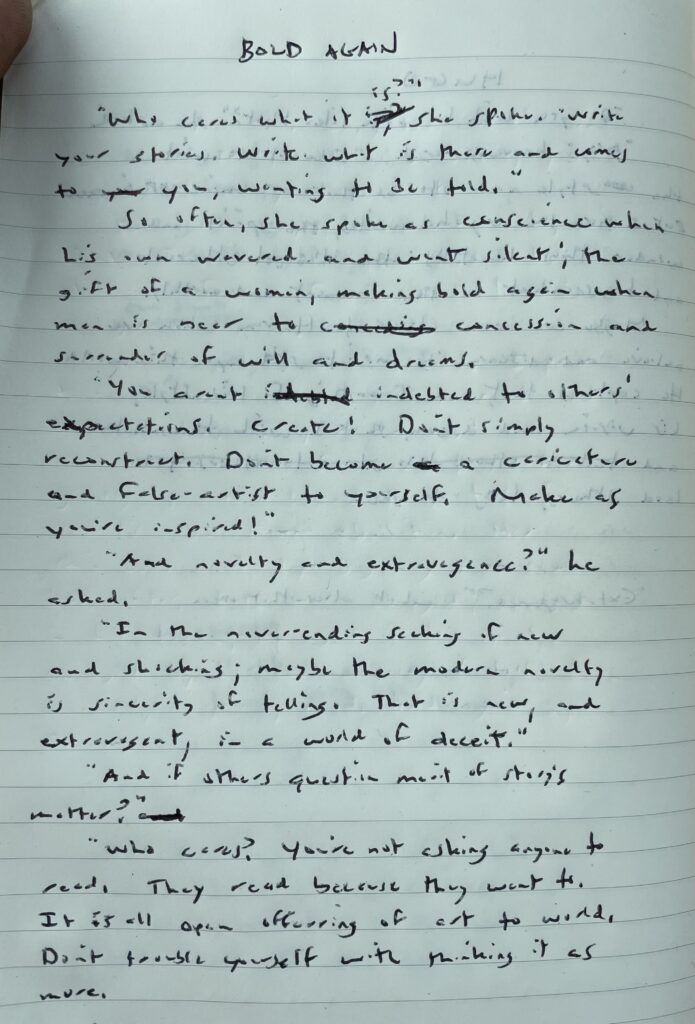 BOLD AGAIN
"Who cares what it is?" she spoke. "Write
your stories. Write what is there and comes
to you, wanting to be told."
So often, she spoke as conscience when
his own wavered and went silent; the
gift of a women, making bold again when
men is near to concession and
surrender of will and dreams.
"You aren't indebted to others'
expectations. Create! Don't simply
reconstruct. Don't become a caricature
and False-artist to yourself. Make as
you're inspired!"
"And novelty and extravegence?" he
asked.
"In the never-ending seeking of new
and shocking; maybe the modern novelty
is sincerity of telling. That is new, and
extravegent, in a world of deceit."
"And if others question merit of story's
matter?"
"Who cares? You're not asking anyone to
read. They read because they want to.
It is all open offering of art to world.
Don't trouble yourself with thinking it as
more.